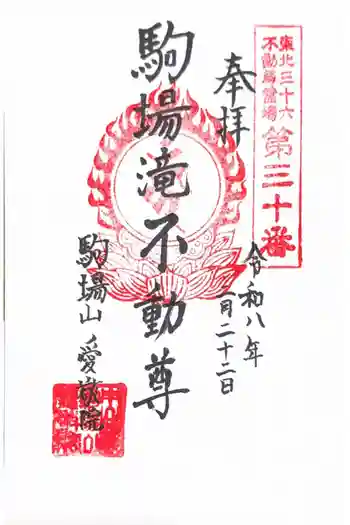 東北三十六
不動尊霊場
第三十番
奉拝
令和八年
二月二十二日
駒場滝不動尊
駒場山
愛敬院